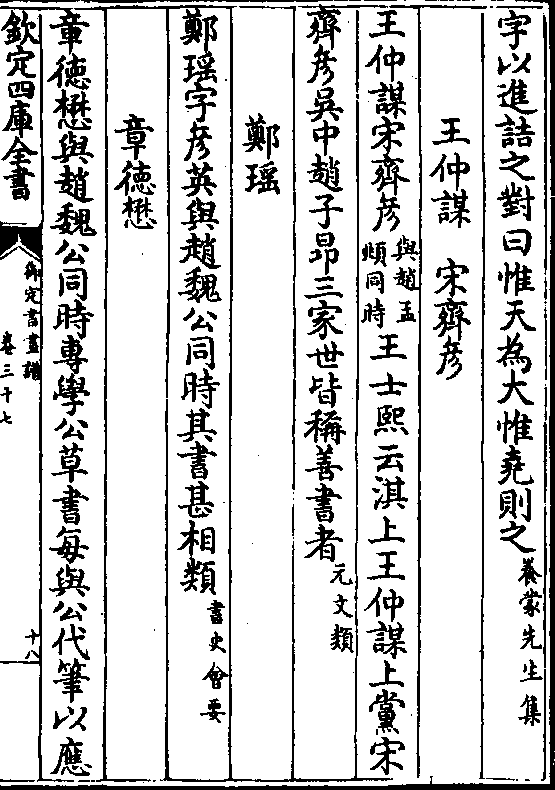 字以進詰之對曰惟天為大惟堯則之養蒙先生集
王仲謀　宋齊彦
王仲謀宋齊彦與趙孟頫同時王士熙云淇上王仲謀上黨宋
齊彦吳中趙子昂三家世皆稱善書者元文類
鄭瑶
鄭瑶字彦英與趙魏公同時其書甚相類書史會要
章德懋
章德懋與趙魏公同時專學公草書每與公代筆以應
欽定四庫全書
御定書畫譜
卷三十七
十八